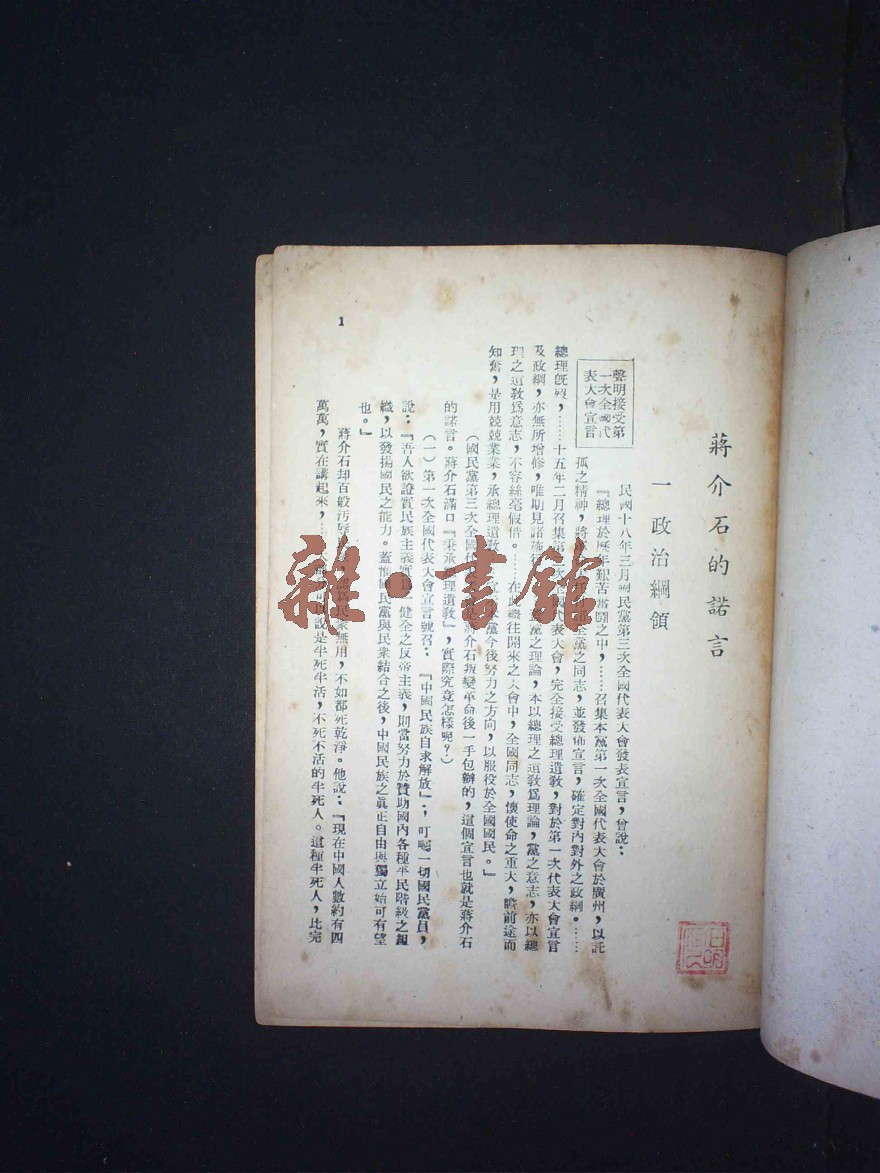 蔣介石的諾言
一政治綱領
聲明接受第
一次全國代
表大會宣言
民國十八年三月國民黨第三次全國代表大會發表宣言，曾說：
『總理於歷年艱苦奮鬪之中，……召集本黨第一次全國代表大會於廣州，以託
孤之精神，將 全黨之同志，並發佈宣言，確定對內對外之政綱。……
總理旣歿，……十五年二月召集第 表大會，完全接受總理遺敎，對於第一次代表大會宣言
及政綱，亦無所增修，唯期見諸施行 黨之理論，本以總理之遺敎爲理論，黨之意志，亦以總
理之遺敎爲意志，不容絲毫假借。……在此繼往開來之大會中，全國同志，懷使命之重大，瞻前途而
知奮，是用兢兢業業，承總理遺敎 本黨今後努力之方向，以服役於全國國民。』
（國民黨第三次全國代 是蔣介石叛變革命後一手包辦的，這個宣言也就是蔣介石
的諾言。蔣介石滿口『秉承總理遺敎』，實際究竟怎樣呢？）
（一）第一次全國代表大會宣言號召：『中國民族自求解放』；叮囑一切國民黨員，
說：『吾人欲證實民族主義實爲健全之反帝主義，則當努力於贊助國內各種平民階級之組
織，以發揚國民之能力。蓋惟國民黨與民衆結合之後，中國民族之眞正自由與獨立始可有望
也。』
蔣介石却百般汚辱 認爲民衆無用，不如都死乾淨。他說：『現在中國人數約有四
萬萬，實在講起來，…… 可以說是半死半活，不死不活的半死人。這種半死人，比完
1
雜·書館